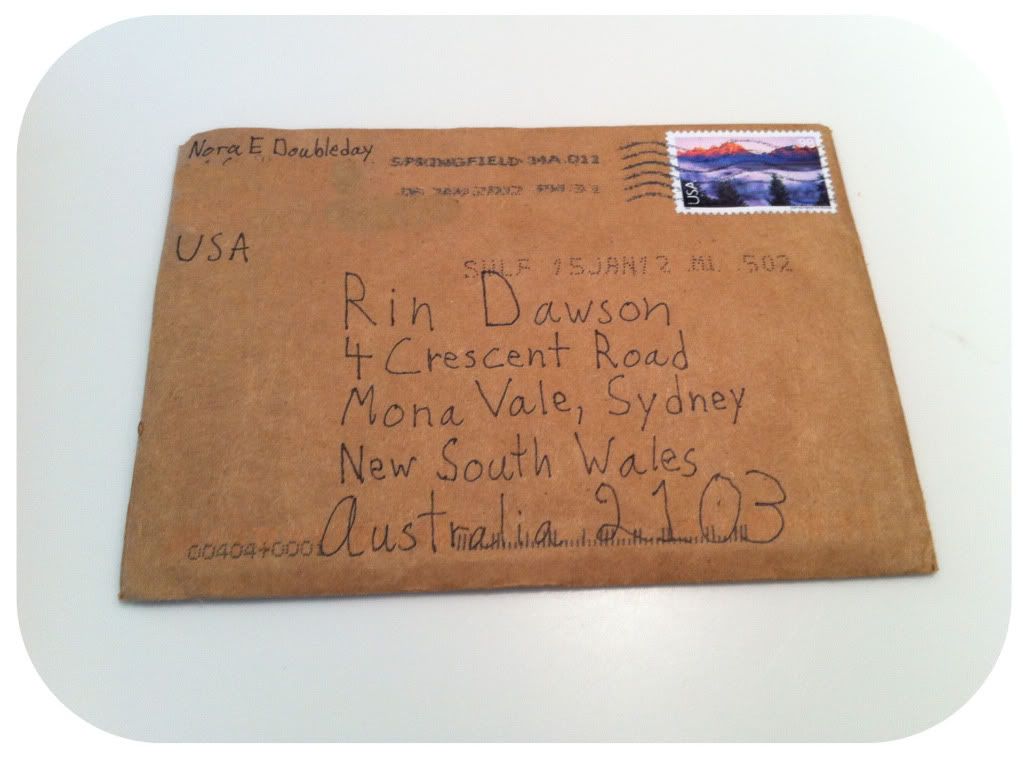 Nora E Doubleday
SPRINGFIELD MA 011
JAN 2012 PM
USA
USA
SWLF 15JAN12 ML 502
Rin Dawson
4 Crescent Road
Mona Vale, Sydney
New South Wales
Australia 2103
00404+0001